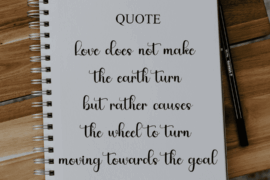 QUOTE
Love does not make
the earth turn
but rather causes
the wheel to turn
moving towards the goal